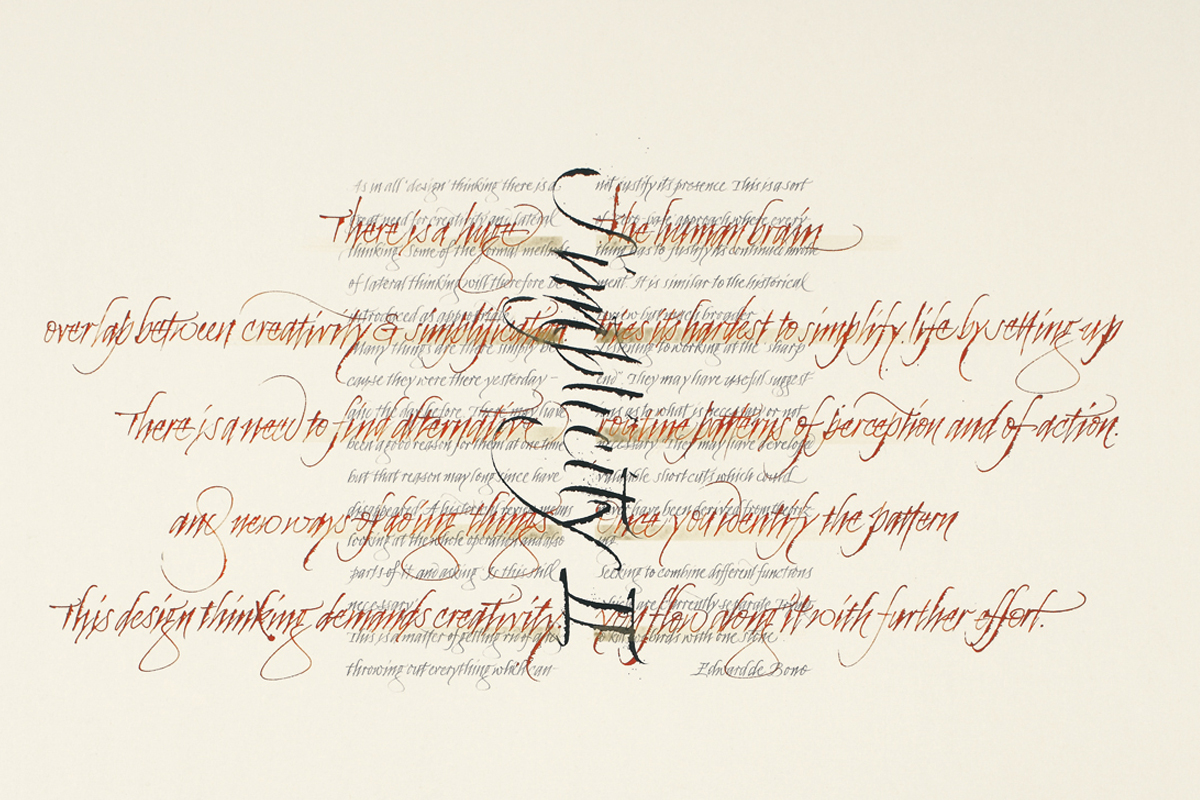 Simplicity II
There is a huge
overlap between creativity & simplification.
There is a need to find alternative
and new ways of doing things
This design thinking demands creativity.
The human brain
tries its hardest to simplify life by setting up
routine patterns of perception and of action.
Once you identify the pattern
you flow along it with further effort.
As in all 'design' thinking there is a
great need for creativity and lateral
thinking. Some of the formal
of lateral thinking will therefore be
introduced as appropriate
Many things are there simply be
cause they were there yesterday –
and the day before. There may have
been a good reason for them at one time
but that reason may long since have
disappeared. A historical review means
looking at the whole operation and also
parts of it and asking Is this still
necessary
This is a matter of getting rid of
throwing out everything which can
not justify its presence This is a sort
of zero-base approach where every
thing has to justify its continued
ment. It is similar to the historical
review but much broader
working at the sharp
end". They may have useful suggest
ions as to what is necessary or not
necessary They may have developed
valuable short cuts which could
have been derived
up
Seeking to combine different functions
which are currently separate
to kill two birds with one stone
Edward de Bono